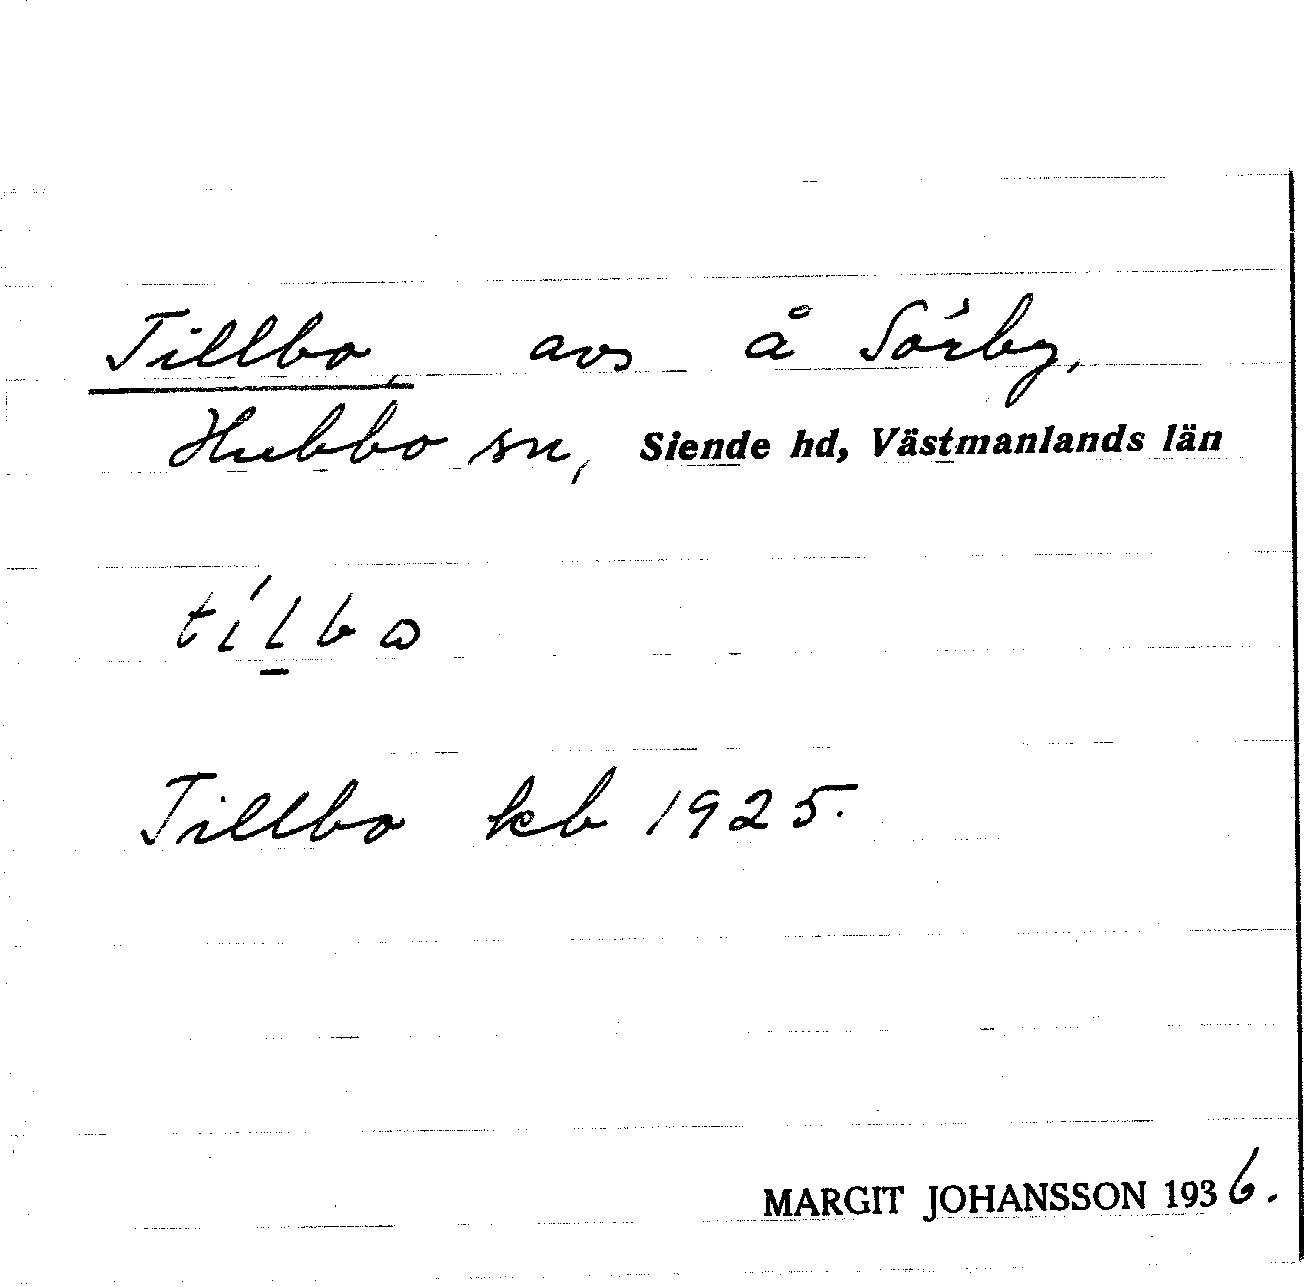 Tillbo, avs å Sörby,
Hubbo sn, Siende hd, Västmanlands län
tíl̲bɷ
Tillbo kb 1925.
MARGIT JOHANSSON 1936.